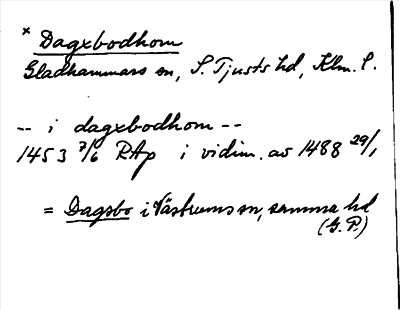 × Dagxbodhom
Gladhammars sn, S. Tjusts hd, Klm. l.
-- i dagxbodhom --
1453 7/6 RAp i vidim. av 1488 29/1
= Dagsbo i Västrums sn, samma hd
(G. P.)